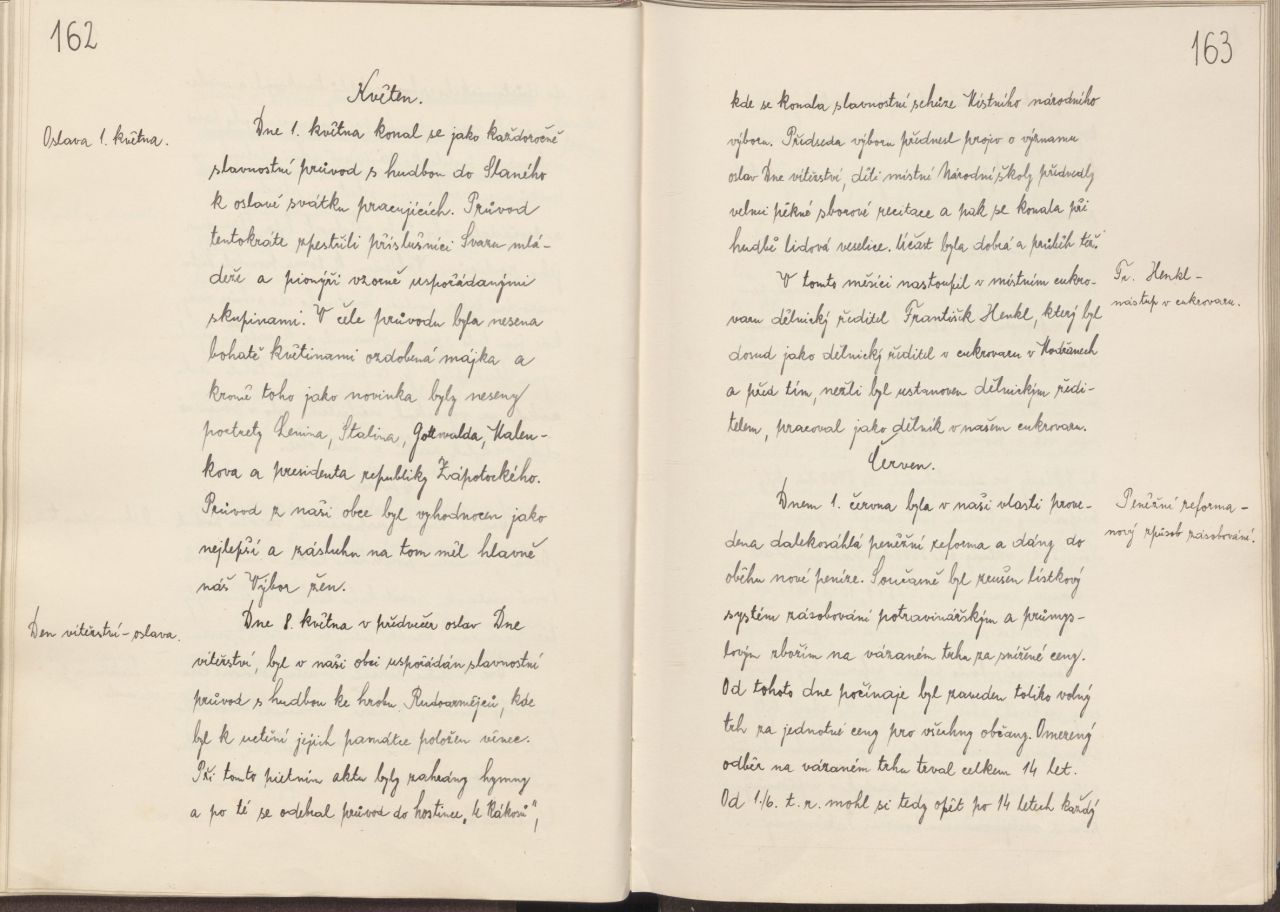 162
Květen.
Oslava 1. května.
Dne 1. května konal se jako každoročně
slavnostní průvod s hudbou do Slaného
k oslavě svátku pracujících. Průvod
tentokráte zpestřili příslušníci Svazu mlá-
deže a pionýři vzorně uspořádanými
skupinami. V čele průvodu byla nesena
bohatě květinami ozdobená májka a
kromě toho jako novinka byly neseny
portrety Lenina, Stalina, Gottwalda, Malen-
kova a presidenta republiky Zápotockého.
Průvod z naší obce byl vyhodnocen jako
nejlepší a zásluhu na tom měl hlavně
náš Výbor žen.
Den vítězství - oslava.
Dne 8. května v předvečer oslav Dne
vítězství, byl v naší obci uspořádán slavnostní
průvod s hudbou ke hrobu Rudoarmějců, kde
byl k uctění jejich památce položen věnec.
Při tomto pietním aktu byly zahrány hymny
a po té se odebral průvod do hostince „U Rákosů",
163
kde se konala slavnostní schůze Místního národního
výboru. Předseda výboru přednesl projev o významu
oslav Dne vítězství, děti místní Národní školy předvedly
velmi pěkné sborové recitace a pak se konala při
hudbě lidová veselice. Účast byla dobrá a průběh též.
Fr. Henkl -
nástup v cukrovaru.
V tomto měsíci nastoupil v místním cukro-
varu dělnický ředitel František Henkl, který byl
dosud jako dělnický ředitel v cukrovaru v Modřanech
a před tím, nežli byl ustanoven dělnickým ředi-
telem, pracoval jako dělník v našem cukrovaru.
Červen.
Peněžní reforma -
nový způsob zásobování.
Dnem 1. června byla v naší vlasti prove-
dena dalekosáhlá peněžní reforma a dány do
oběhu nové peníze. Současně byl zrušen lístkový
systém zásobování potravinářským a průmys-
lovým zbožím na vázaném trhu za snížené ceny.
Od tohoto dne počínaje byl zaveden toliko volný
trh za jednotné ceny pro všechny občany. Omezený
odběr na vázaném trhu trval celkem 14 let.
Od 1./6. t. r. mohl si tedy opět po 14 letech každý